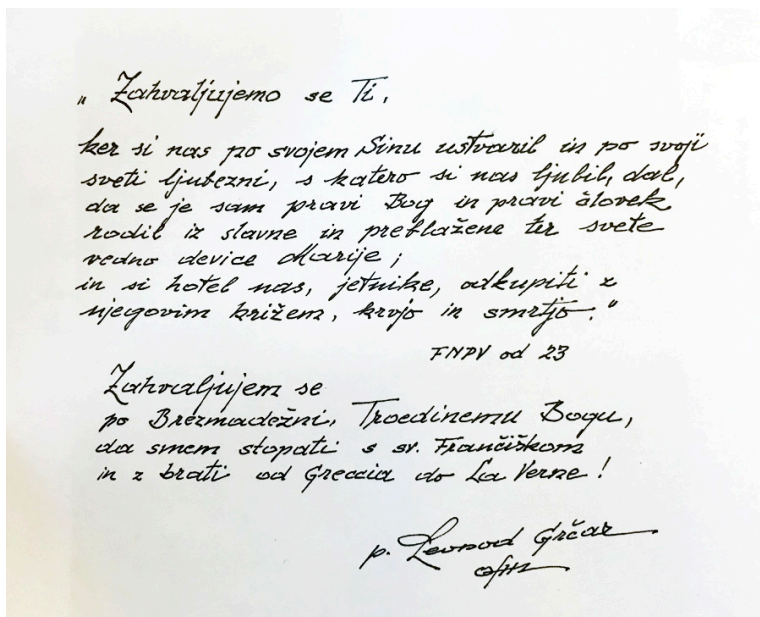 „Zahvaljujemo se Ti,
ker si nas po svojem Sinu ustvaril in po svoji
sveti ljubezni, s katero si nas ljubil, dal,
da se je sam pravi Bog in pravi človek
rodil iz slavne in preblažene ter svete
vedno device Marije;
in si hotel nas, jetnike, odkupiti z
njegovim križem, krvjo in smrtjo."
FNPV od 23
Zahvaljujem se
po Brezmadežni, Troedinemu Bogu,
da smem stopati s sv. Frančiškom
in z brati od Greccia do La Verne!
p. Leonard Grčar
ofm